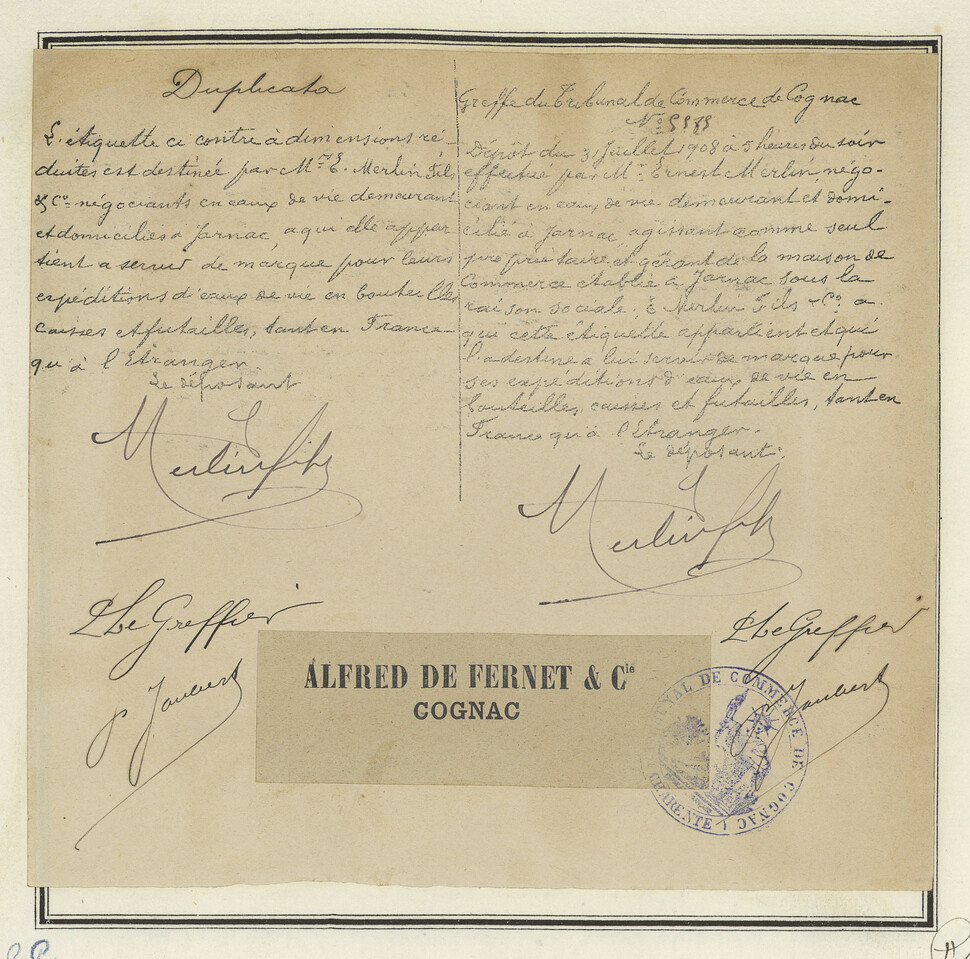 Duplicata
L'étiquette ci contre à dimensions ré-
duites est destinée par Mrs E. Merlin Fils
& Co négociants en eaux de vie demeurant
et domiciliés à Jarnac, a qui elle appar
tient a servir de marque pour leurs
expéditions d'eaux de vie en bouteilles
caisses et futailles, tant en France
qu'à l'Etranger
Le déposant
Merlin fils
Le Greffier
p Joubert
Greffe du Tribunal de Commerce de Cognac
No
Dépôt du 31 Juillet 1908 à 5 heures du soir
effectué par Mr Ernest Merlin, négo-
ciant en eaux de vie demeurant et domi-
cilié à Jarnac, agissant comme seul
propriétaire et gérant de la maison de
Commerce etablie à Jarnac sous la
raison sociale, E Merlin Fils & Co a
qui cette étiquette appartient et qui
l'a destine a lui servir de marque pour
ses expéditions d'eaux de vie en
bouteilles, caisses et futailles, tant en
France qu'à l'Etranger.
Le déposant.
Merlin fils
Le Greffier
p Joubert
ALFRED DE FERNET & Cie
COGNAC
DE COMMERCE DE COGNAC
(CHARENTE)